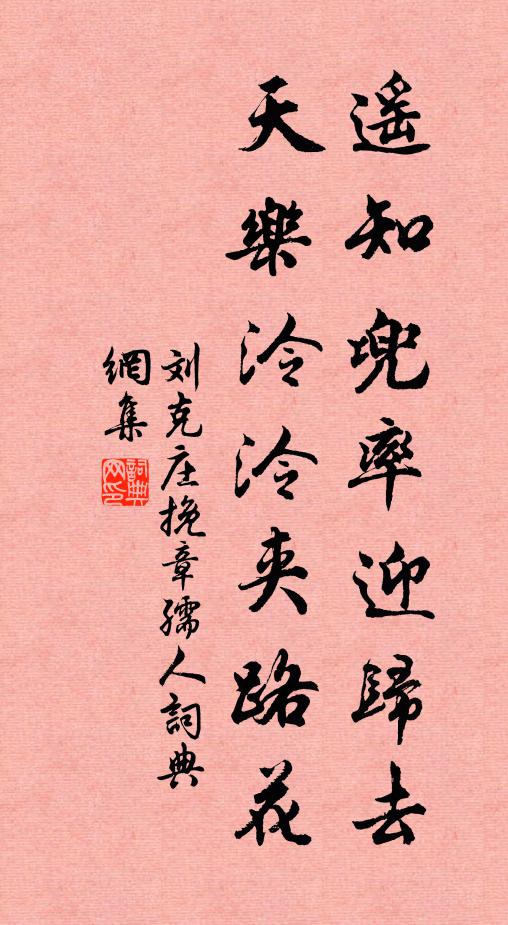 遥知兜率迎歸去
天樂泠泠夾路花
刘克庄挽章孺人詞典
網集
詞典網印